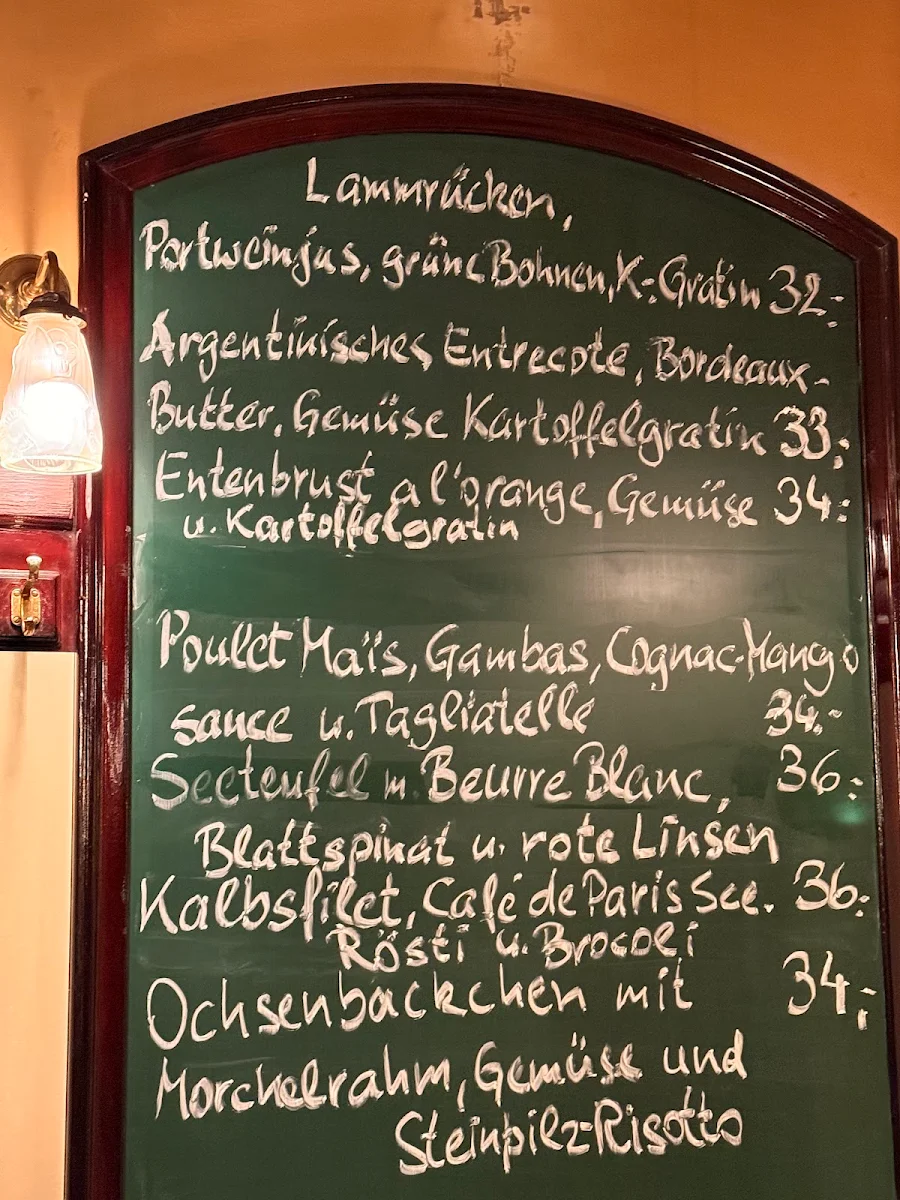 Lammrücken,
Portweinjus, grüne Bohnen, K.-Gratin 32.-
Argentinisches Entrecote, Bordeaux-
Butter, Gemüse Kartoffelgratin 33.-
Entenbrust a l'orange, Gemüse 34.-
u. Kartoffelgratin
Poulet Maïs, Gambas, Cognac-Mango
sauce u. Tagliatelle 34.-
Seeteufel m. Beurre Blanc, 36.-
Blattspinat u. rote Linsen
Kalbsfilet, Café de Paris Sce. 36.-
Rösti u. Brocoli
Ochsenbackchen mit 34.-
Morchelrahm, Gemüse und
Steinpilz-Risotto